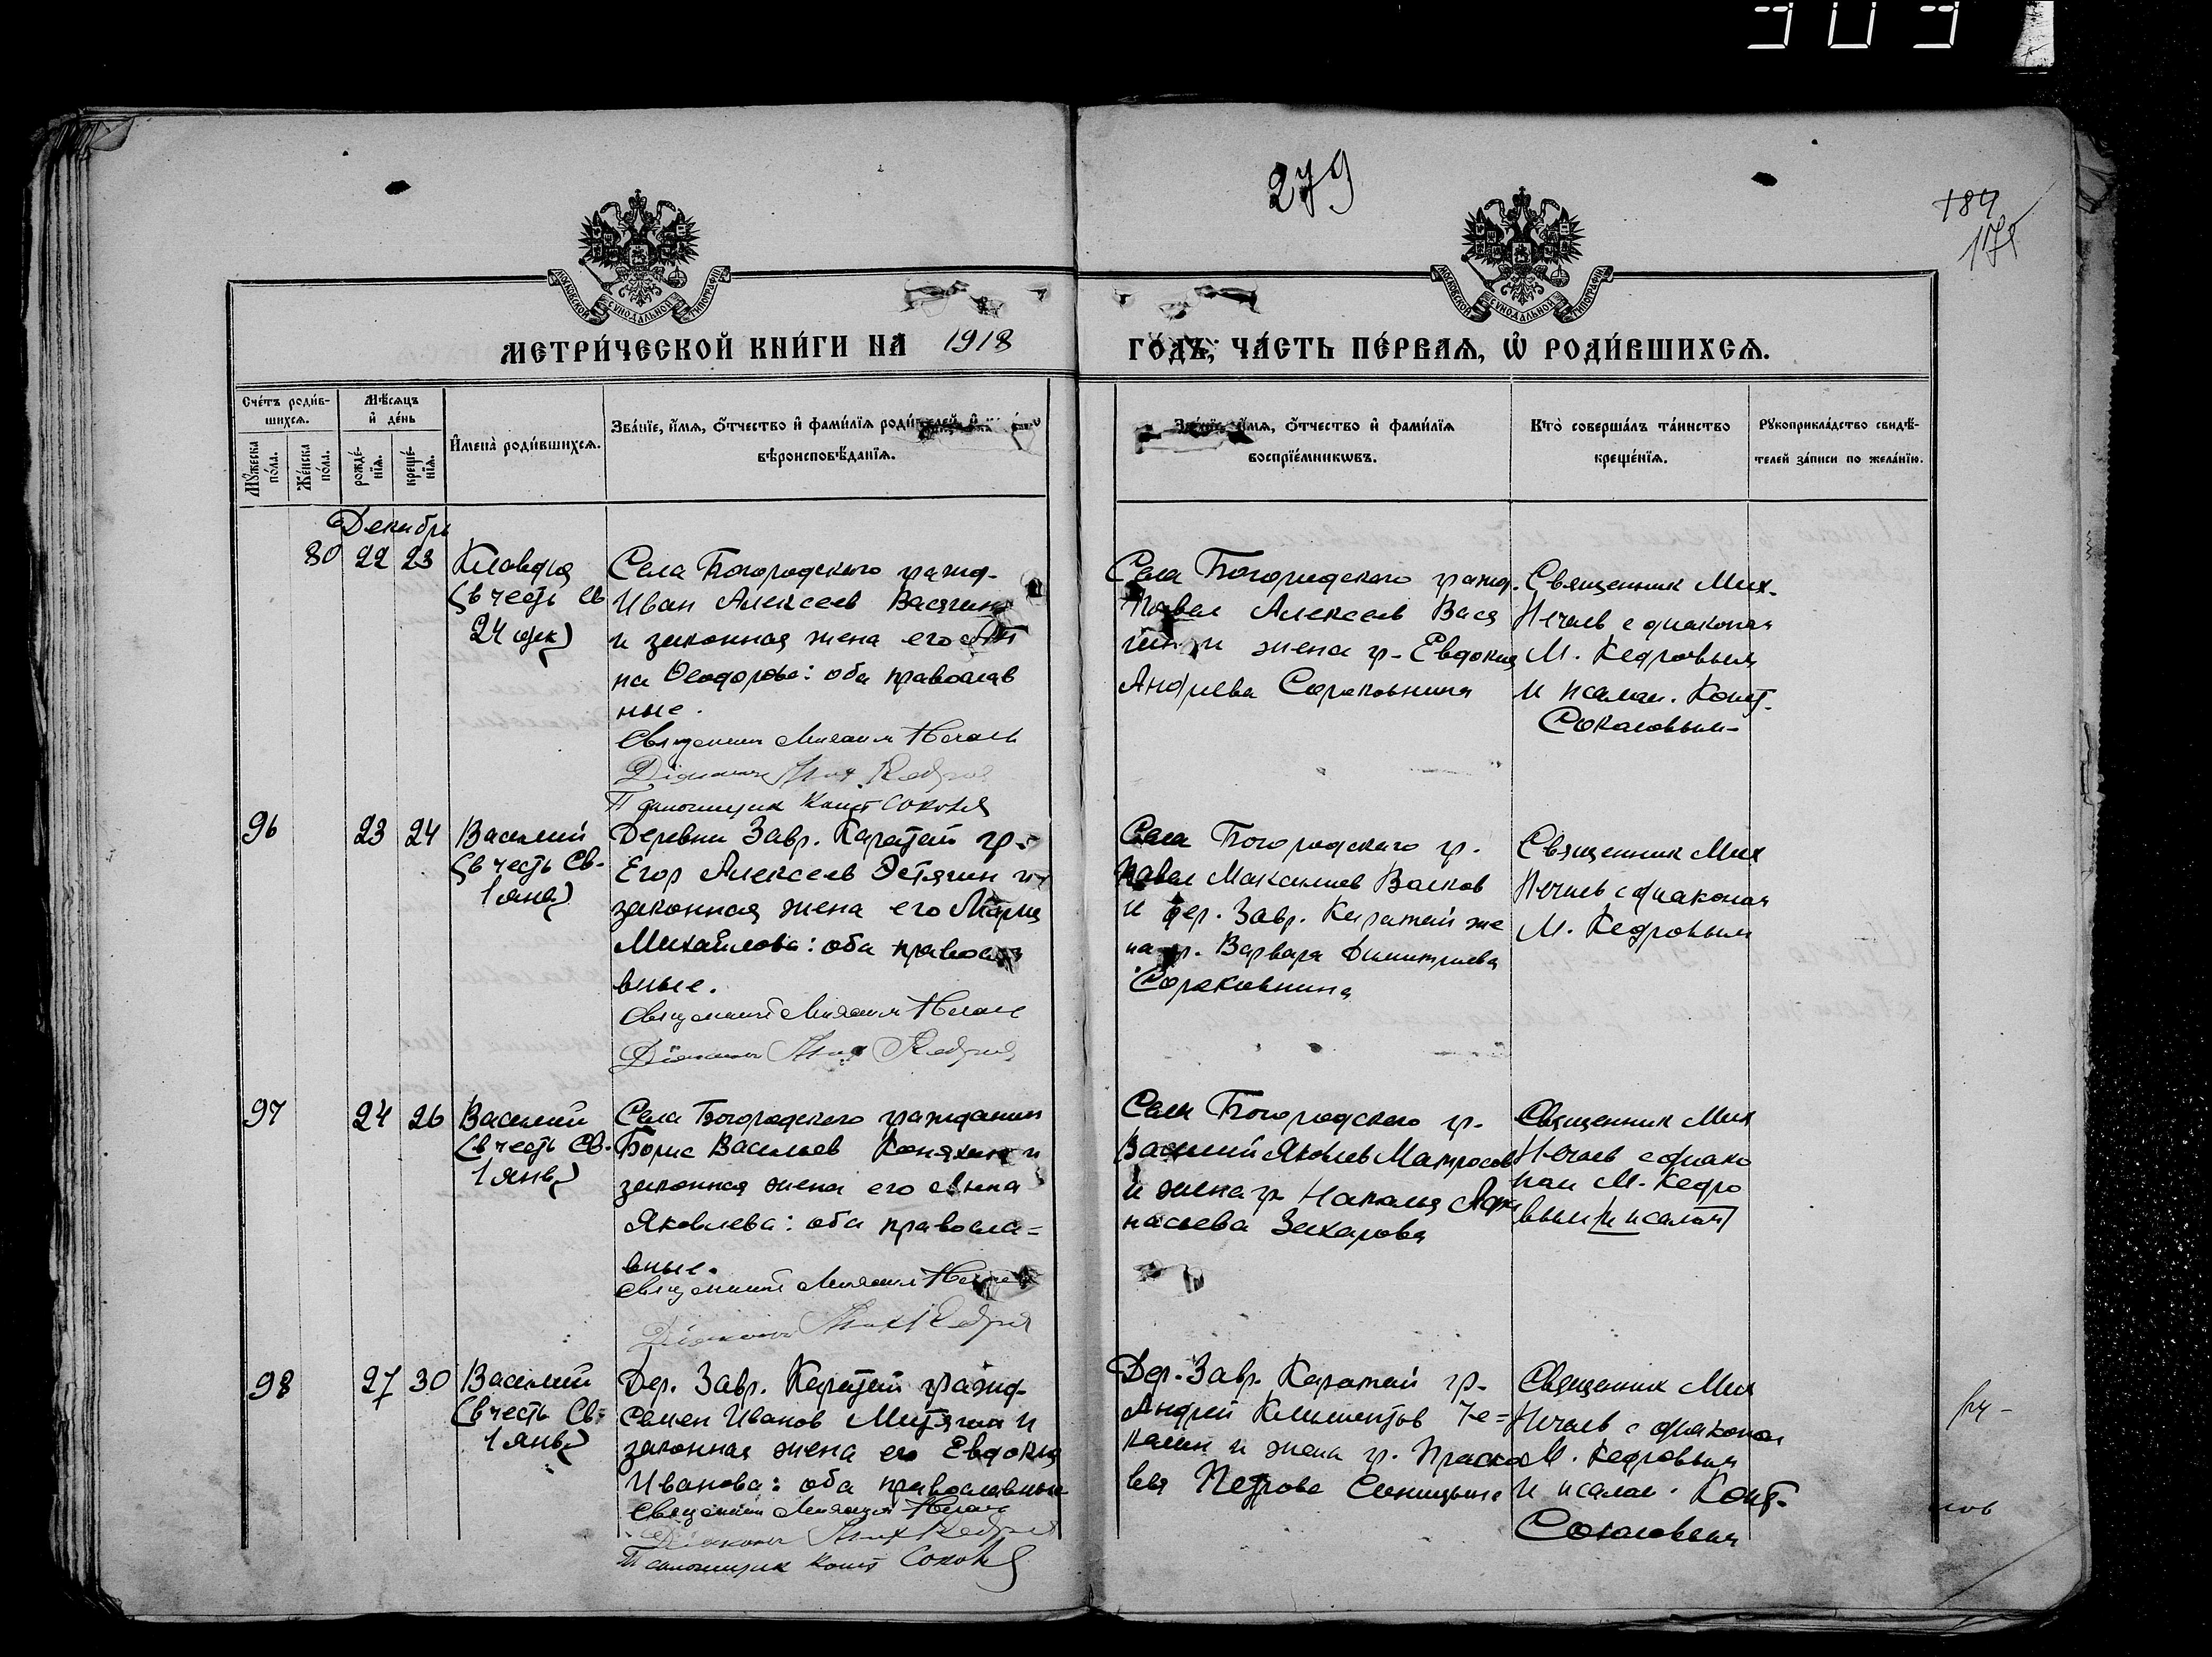 309
279
184
175
МОСКОВСКОЙ СѴНОДАЛЬНОЙ ТИПОГРАФІИ
МОСКОВСКОЙ СѴНОДАЛЬНОЙ ТИПОГРАФІИ
МЕТРИ́ЧЕСКОЙ КНИ́ГИ НА 1918
ГО́ДЪ, ЧА́СТЬ ПЕ́РВАѦ, Ѡ҆ РОДИ́ВШИХСѦ.
Сче́тъ роди́в-
шихсѧ.
Мꙋ́жеска по́ла.
Же́нска по́ла.
Мѣ́сѧцъ
и҆ де́нь
рожде́-
нїѧ.
креще́-
нїѧ.
И҆мена̀ роди́вшихсѧ.
Зва́нїе, и҆́мѧ, ѻ҆́тчество и҆ фами́лїѧ роди́телей, и҆
вѣроисповѣ́данїѧ.
Зва́нїе, и҆́мѧ, ѻ҆́тчество и҆ фами́лїѧ
воспрїе́мникѡвъ.
Кто̀ соверша́лъ та́инство
креще́нїѧ.
Рꙋкоприкла́дство свидѣ́-
телей за́писи по жела́нїю.
Декабрь
80 22 23
Клавдия
(в честь св
24 дек)
Села Богородского гражд.
Иван Алексеев Васягин
и законная жена его Ан
на Феодорова: оба православ
ные.
Священник Михаил Нечаев
Діаконъ Мих Кедров
Псаломщик Конст Соколов
Села Богородского гражд.
Павел Алексеев Вася
гин и жена гр. Евдокия
Андреева Сороковнина
Священник Мих.
Нечаев с диаконом
М. Кедровым
и псалом. Конст.
Соколовым
96 23 24
Василий
(в честь Св.
1 янв)
Деревни Завр. Каратай гр.
Егор Алексеев Фетягин и
законная жена его Мария
Михайлова: оба правосла
вные.
Священник Михаил Нечаев
Діаконъ Мих Кедров
Села Богородского гр.
Павел Максимов Волков
и дер. Завр. Каратай же
на гр. Варвара Димитриева
Сороковнина
Священник Мих
Нечаев с диаконом
М. Кедровым
97 24 26
Василий
(в честь Св.
1 янв)
Села Богородского гражданин
Борис Васильев Коняхин и
законная жена его Анна
Яковлева: оба правосла=
вные.
Священник Михаил Нечаев
Діаконъ Мих Кедров
Села Богородского гр.
Василий Яковлев Матросов
и жена гр. Наталья Афа
насьева Захарова
Священник Мих
Нечаев с диако
ном М. Кедро
вым и псалом
98 27 30
Василий
(в честь Св.
1 янв)
Дер. Завр. Каратай гражд.
Семен Иванов Митягин и
законная жена его Евдокия
Иванова: оба православные
Священник Михаил Нечаев
Діаконъ Мих Кедров
Псаломщик Конст Соколов
Дер. Завр. Каратай гр.
Андрей Климентов Че=
калин и жена гр. Праско
вья Петрова Синицына
Священник Мих
Нечаев с диаконом
М. Кедровым
и псалом. Конст.
Соколовым